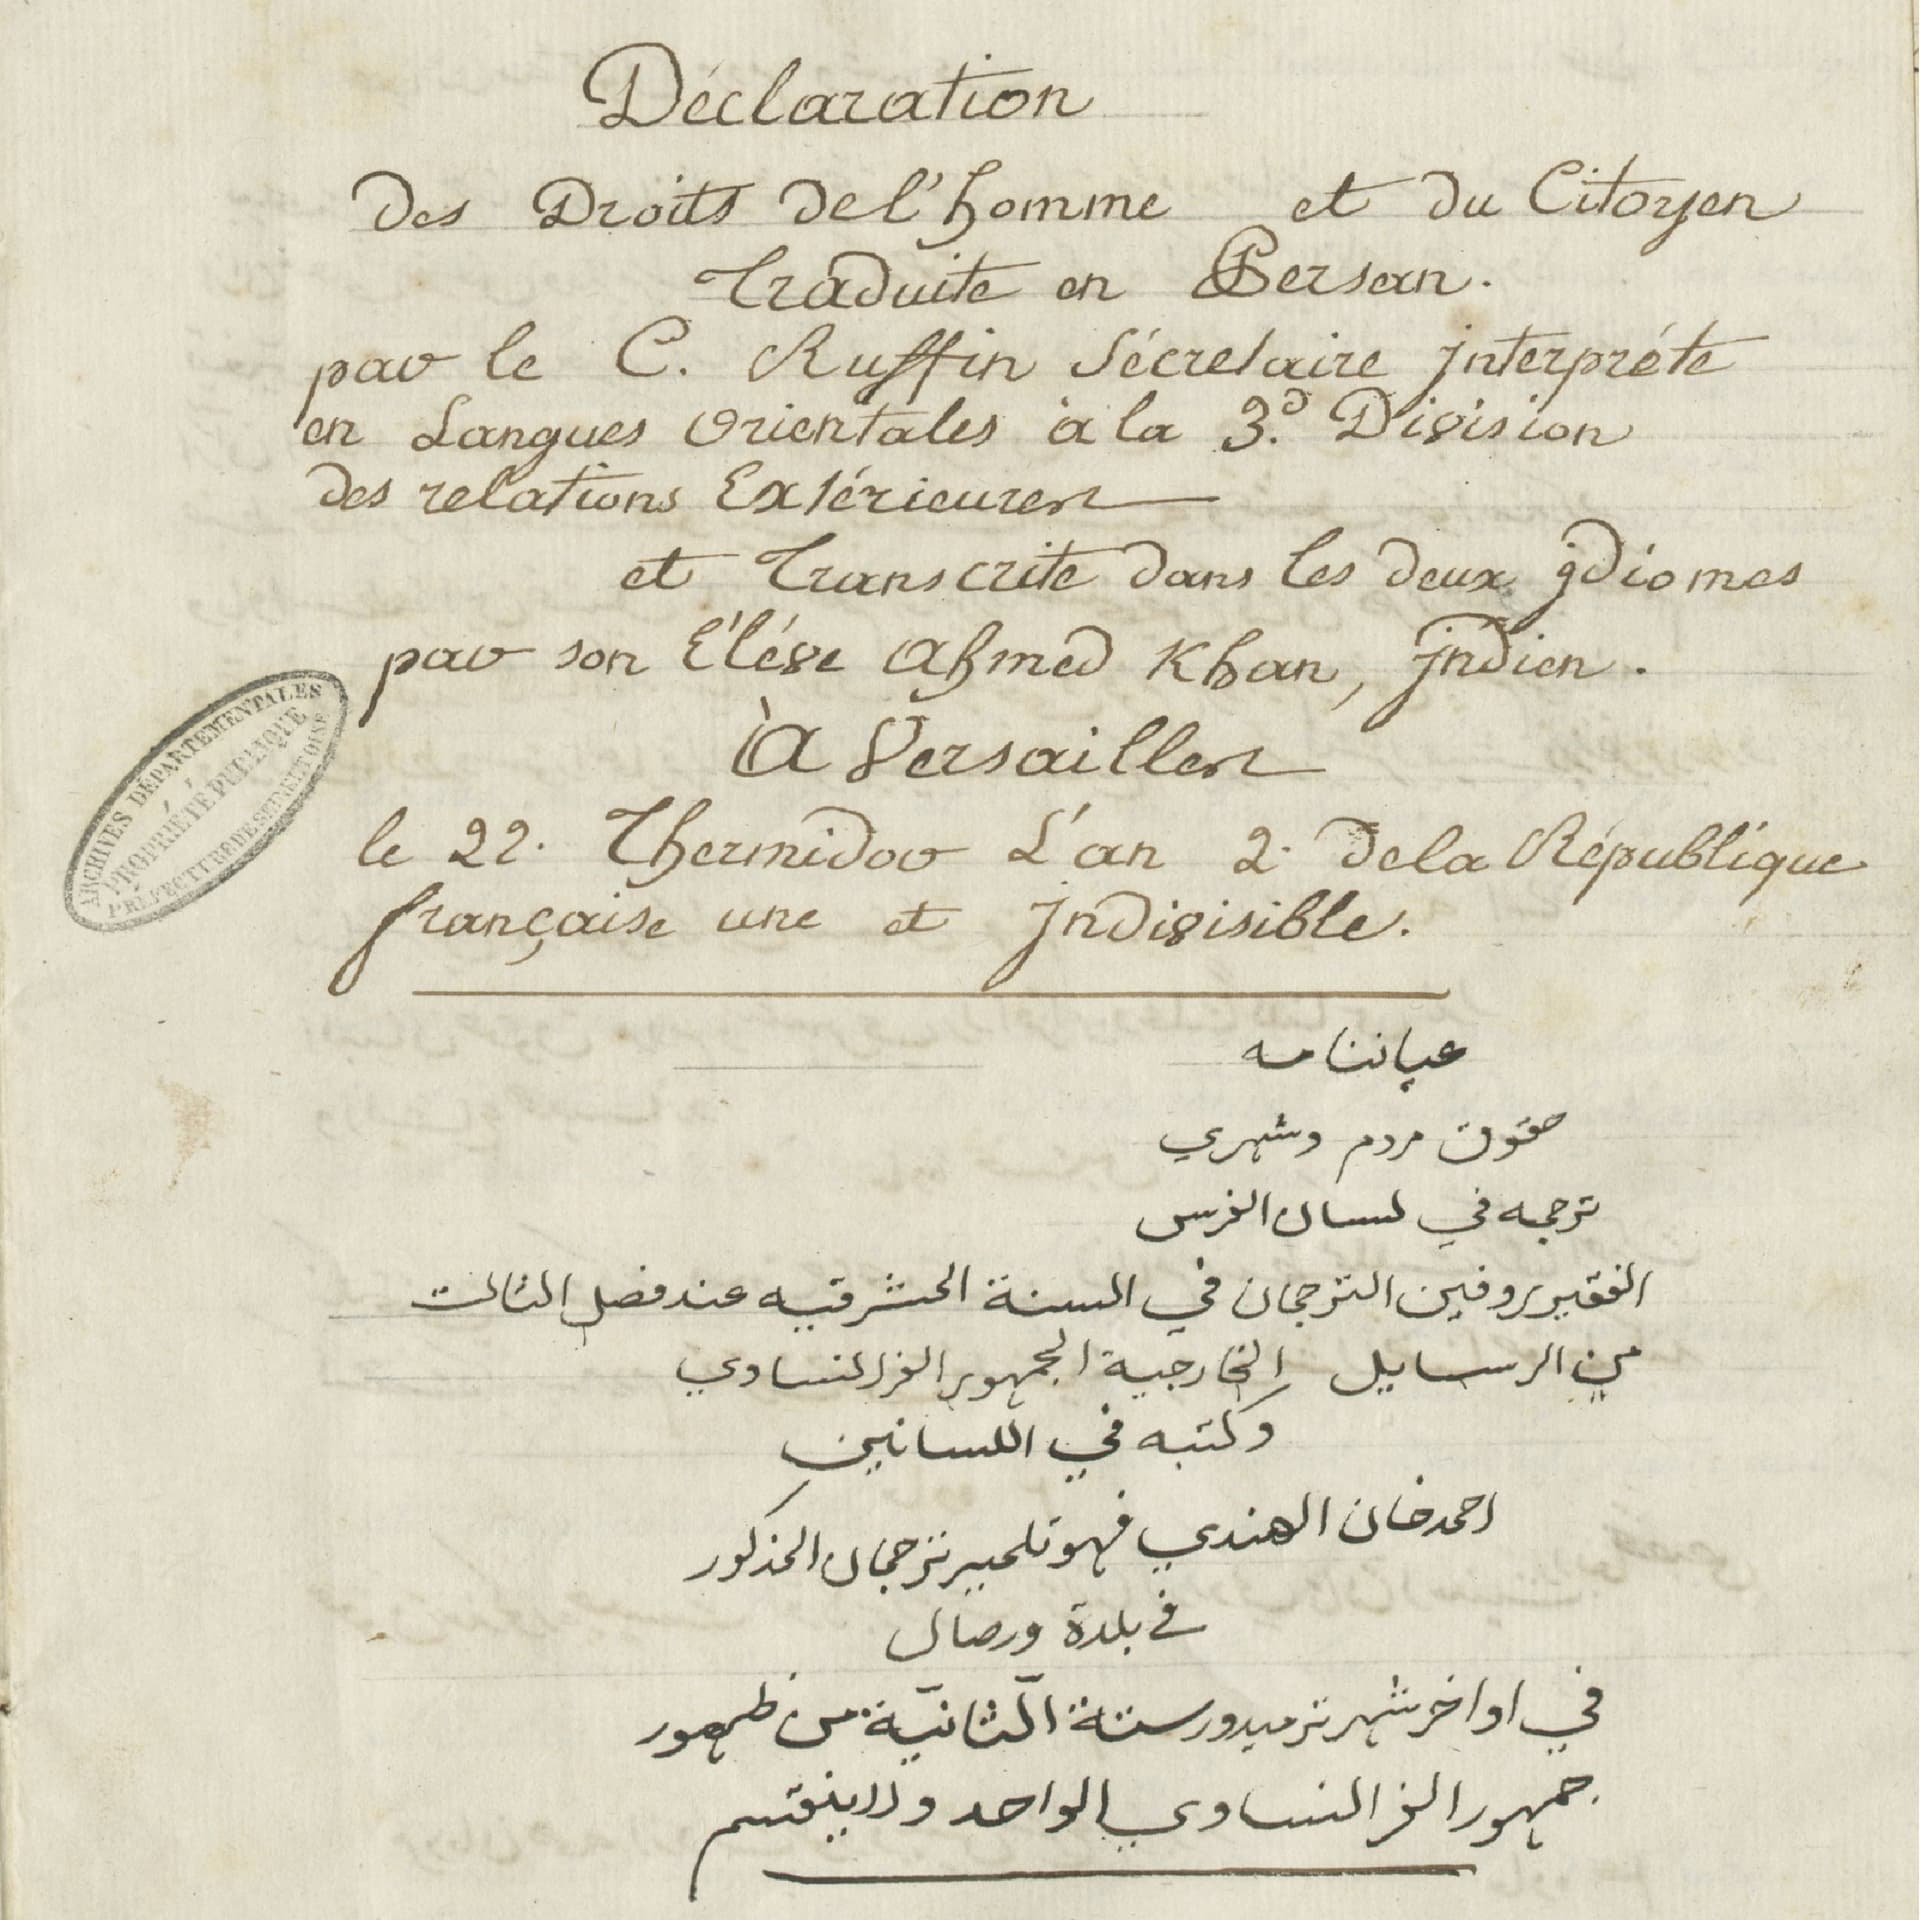 Déclaration
des Droits de l'homme et du Citoyen
Traduite en Persan.
par le C. Ruffin Sécretaire jnterpréte
en Langues Orientales à la 3.e Division
des relations Extérieures
et Transcrite dans les deux jdiomes
par son Éléve Ahmed Khan, jndien.
À Versailles
le 22. Thermidor L'an 2. de la République
française une et jndivisible.
ARCHIVES DÉPARTEMENTALES
PROPRIÉTÉ PUBLIQUE
PRÉFECTURE DE SEINE ET OISE
عياننامه
حقوق مردم وشهري
ترجمه في لسان الفرس
الفقير روفين الترجمان في السنة المشرقيه عند فصل الثالث
من الرسايل الخارجية الجمهور الفرانساوي
وكتبه في اللسانين
احمد خان الهندي فهو تلميير ترجمان المذكور
في بلدة ورصال
في اواخر شهر ترميدور سنة الثانيّة من ظهور
جمهور الفرانساوي الواحد ولا ينقسم